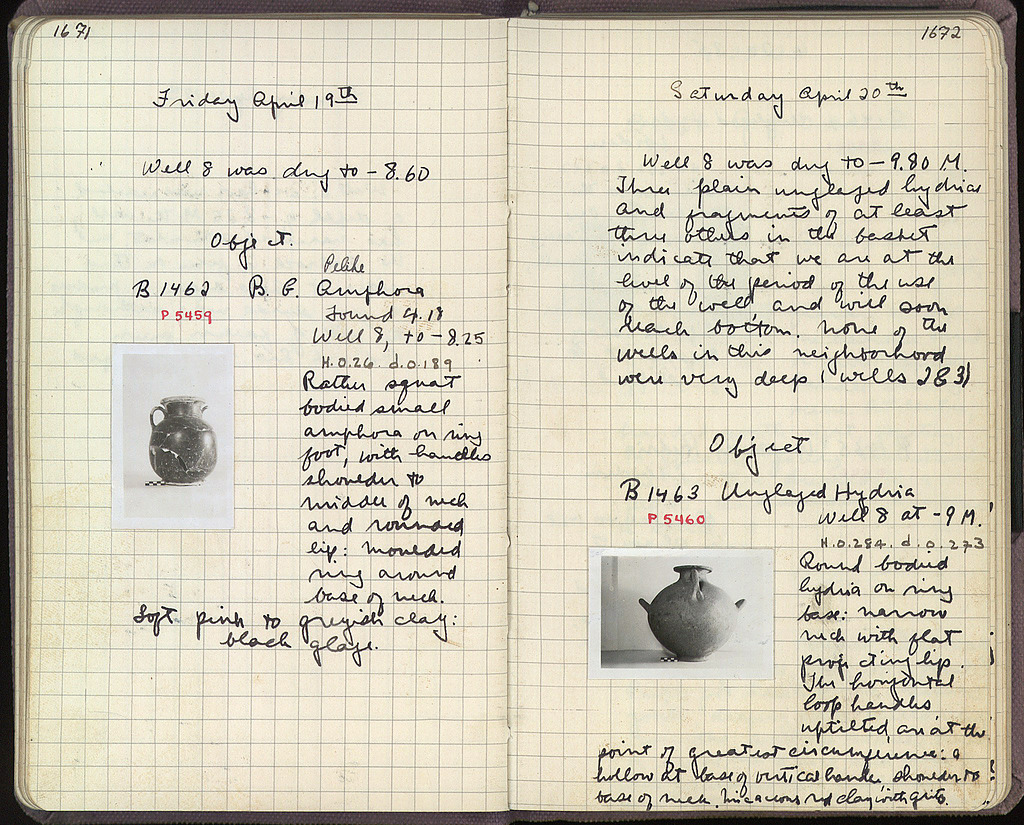 1671
Friday April 19th
Well 8 was dug to - 8.60
Object.
Pelike
B 1462 B. G. Amphora
P 5459
Found 4.18
Well 8, to - 8.25
H. 0.26. d. 0.189
Rather squat
bodied small
amphora on ring
foot, with handles
shoulder to
middle of neck
and rounded
lip: moulded
ring around
base of neck.
Soft pink to greyish clay:
black glaze.
1672
Saturday April 20th
Well 8 was dug to - 9.80 M.
Three plain unglazed hydrias
and fragments of at least
three others in the basket
indicate that we are at the
level of the period of the use
of the well and will soon
reach bottom. None of the
wells in this neighborhood
were very deep ( wells 2 & 3)
Object
B 1463 Unglazed Hydria
P 5460
Well 8 at - 9 M.
H. 0.284. d. 0.273
Round bodied
hydria on ring
base: narrow
neck with flat
projecting lip.
The horizontal
loop handles
uptilted, are at the
point of greatest circumference: a
hollow at base of vertical handle shoulder to
base of neck. Micaceous red clay with grits.